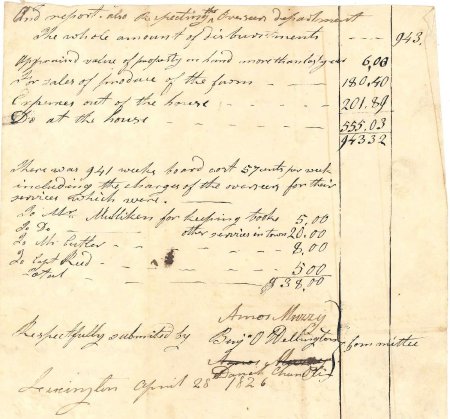 And report also Respecting the Overseers department
The whole amount of disbursements - - - 943.
Appraised value of property on hand more than last year 6,00
For sales of produce of the farm - - - 180.40
Expenses out of the house - - - 201.89
Do at the house - - - 555.03
943 32
There was 941 weeks board cost 57 cents per week
including the charges of the overseers for their
services which were. -
To Mr. Milliken for keeping books 5.00
To Do - - other services in town 20.00
To Mr Cutler - - - 8,00
To Capt Reed - - - 5 00
Total - - - $ 38,00
Amos Muzzy
Respectfully submitted by Benj O Wellington
Committee
Lexington April 28 1826